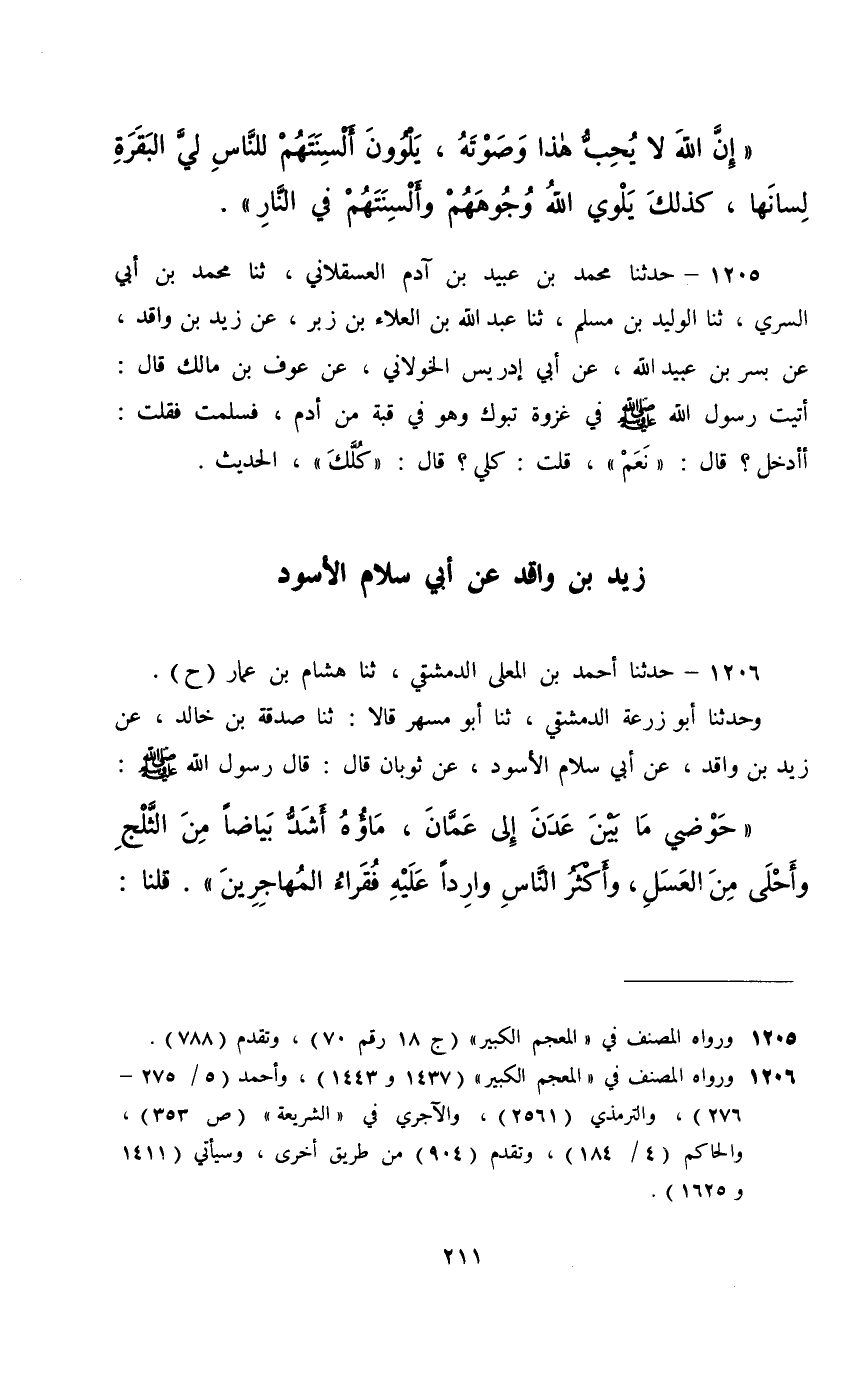 « إِنَّ اللهَ لا يُحِبُّ هٰذا وَصَوْتَهُ ، يَلْوُونَ أَلْسِنَتَهُمْ للنَّاسِ ليَّ البَقَرَةِ
لِسانَها ، كذلكَ يَلْوي اللهُ وُجُوهَهُمْ وأَلْسِنَتَهُمْ في النَّارِ » .
١٢٠٥ – حدثنا محمد بن عبيد بن آدم العسقلاني ، ثنا محمد بن أبي
السري ، ثنا الوليد بن مسلم ، ثنا عبد الله بن العلاء بن زبر ، عن زيد بن واقد ،
عن بسر بن عبيد الله ، عن أبي إدريس الخولاني ، عن عوف بن مالك قال :
أتيت رسول الله ﷺ في غزوة تبوك وهو في قبة من أدم ، فسلمت فقلت :
أأدخل ؟ قال : « نَعَمْ » ، قلت : كلي ؟ قال : « كُلَّكَ » ، الحديث .
زيد بن واقد عن أبي سلام الأسود
١٢٠٦ – حدثنا أحمد بن المعلى الدمشقي ، ثنا هشام بن عمار (ح) .
وحدثنا أبو زرعة الدمشقي ، ثنا أبو مسهر قالا : ثنا صدقة بن خالد ، عن
زيد بن واقد ، عن أبي سلام الأسود ، عن ثوبان قال : قال رسول الله ﷺ :
« حَوْضي مَا بَيْنَ عَدَنَ إلى عَمَّانَ ، مَاؤُهُ أَشَدُّ بَياضاً مِنَ الثَّلْجِ
وأَحْلَى مِنَ العَسَلِ ، وأَكْثَرُ النَّاسِ وارِداً عَلَيْهِ فُقَراءُ المُهاجِرِينَ » . قلنا :
١٢٠٥ ورواه المصنف في « المعجم الكبير » (ج ١٨ رقم ٧٠) ، وتقدم (٧٨٨) .
١٢٠٦ ورواه المصنف في « المعجم الكبير » (١٤٣٧ و ١٤٤٣) ، وأحمد (٥ / ٢٧٥ –
٢٧٦) ، والترمذي (٢٥٦١) ، والآجري في « الشريعة » (ص ٣٥٣) ،
والحاكم (٤ / ١٨٤) ، وتقدم (٩٠٤) من طريق أخرى ، وسيأتي (١٤١١
و ١٦٢٥) .
٢١١